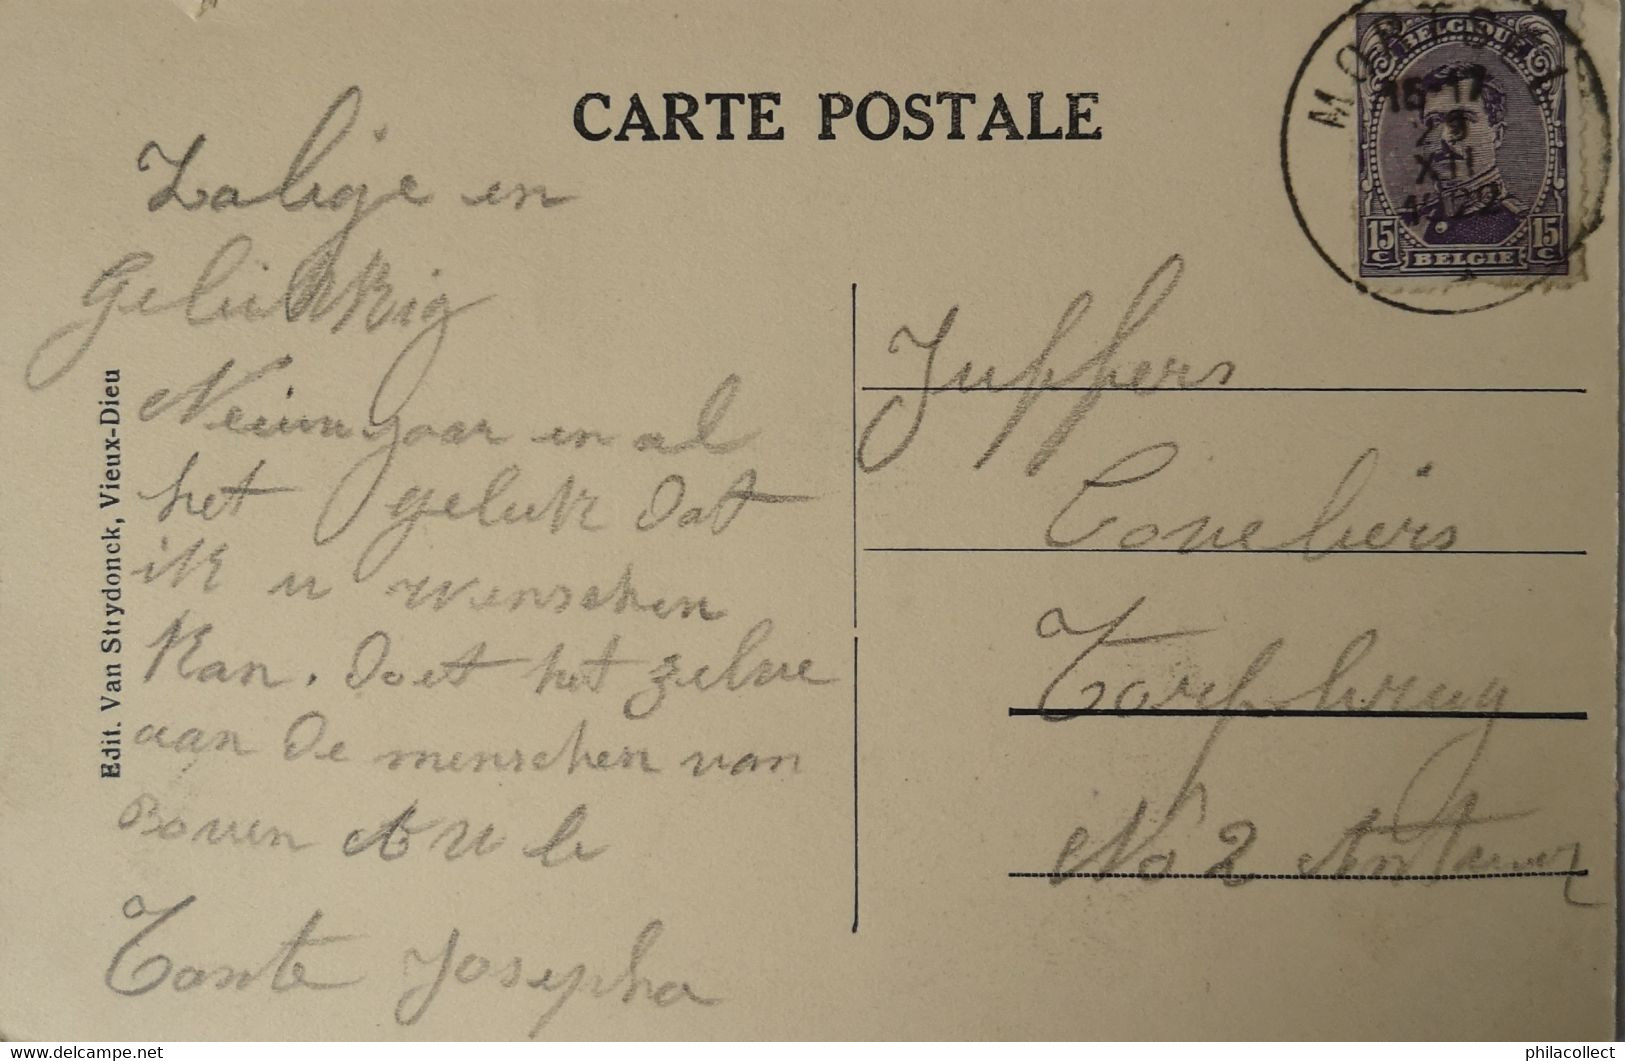 CARTE POSTALE
BELGIQUE
MORTSEL
16-17
29
XII
1922
15 c
15 c
BELGIE
Zalige en
Gelukkig
Neiuwjaar en al
het geluk dat
ik u wenschen
Kan. Doet het zelve
aan de menschen van
Boven
Tante Josepha
Edit. Van Strydonck, Vieux-Dieu
Juffers
Coueliers
Torfbrug
No 2 Antwerp
philacollect